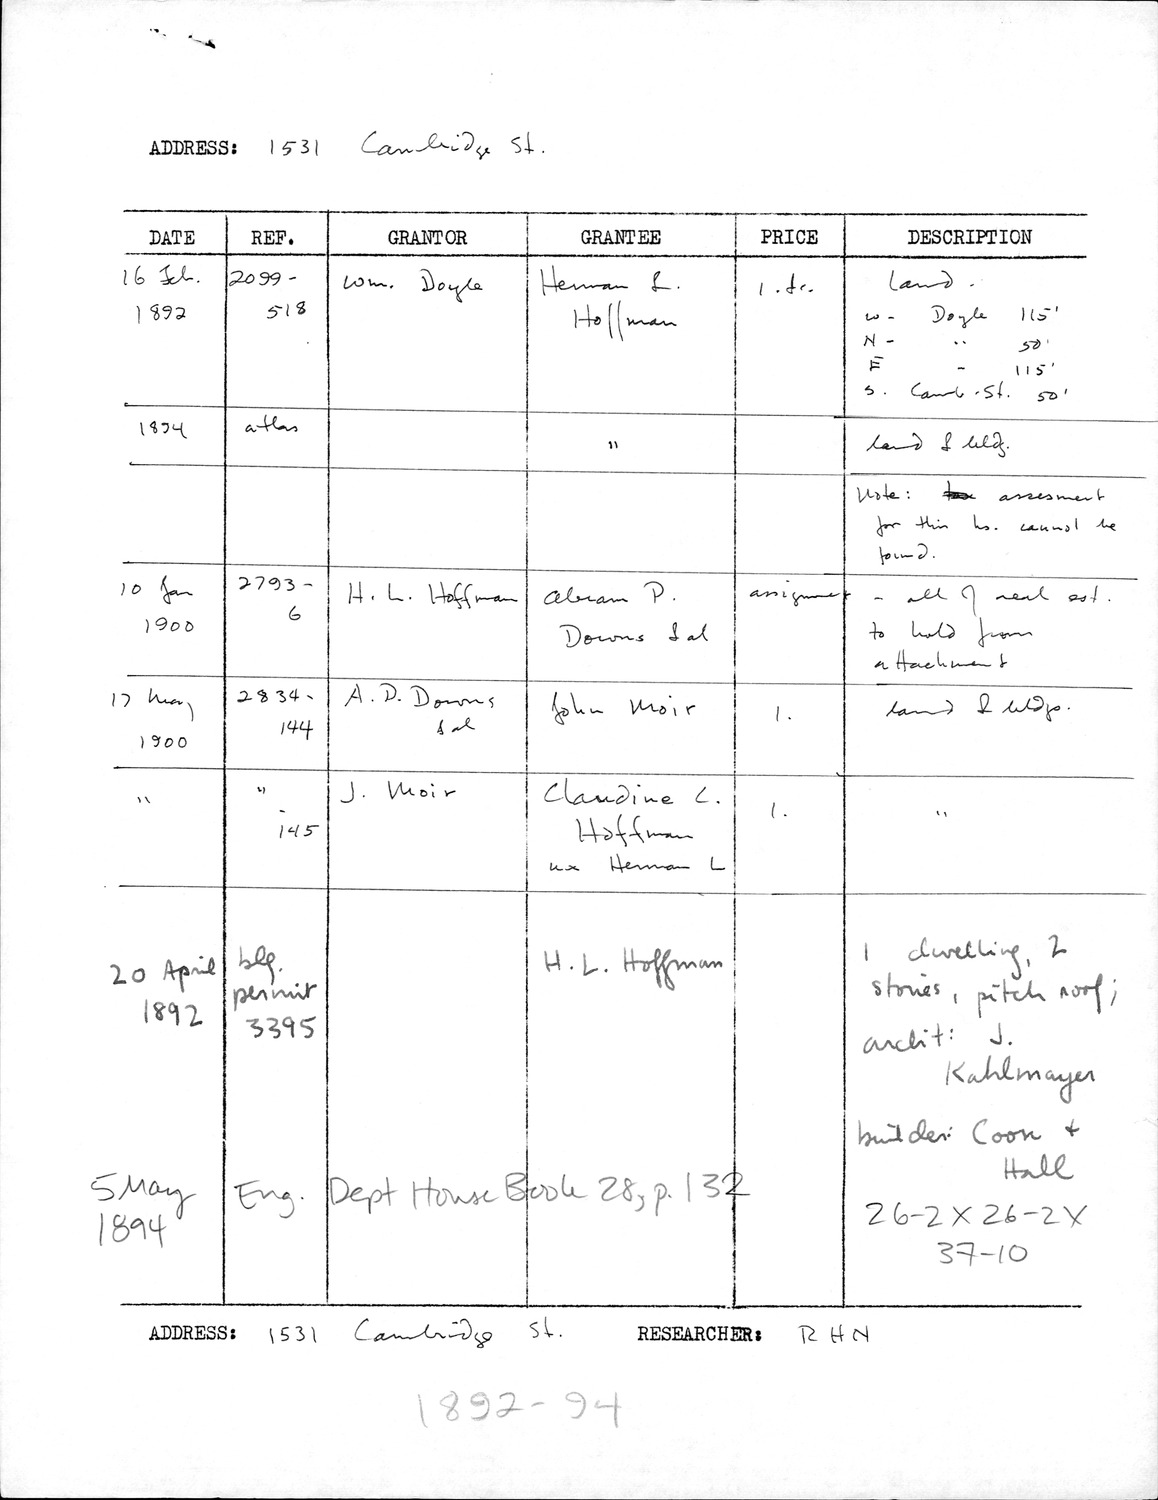 ADDRESS: 1531 Cambridge St.
DATE REF. GRANTOR GRANTEE PRICE DESCRIPTION
16 Feb. 2099- Wm. Doyle Herman L. 1. &c. land.
1892 518 Hoffman
W - Doyle 115'
N - " 50'
E - 115'
S. Camb. St. 50'
1894 atlas " land & bldg.
Note: assesment
for this hs. cannot be
found.
10 Jan 2793- H. L. Hoffman Abram P. assignment - all of real est.
1900 6 Downs & al to hold from
attachment
17 May 2834- A. P. Downs John Moir 1. land & bldgs.
1900 144 & al
" " J. Moir Claudine C. 1. "
-
145 Hoffman
ux Herman L
20 April blg. H. L. Hoffman 1 dwelling, 2
1892 permit stories, pitch roof;
3395 archit: J.
Kahlmayer
builder: Coon +
Hall
5 May Eng. Dept House Book 28, p. 132
1894 26-2 X 26-2 X
37-10
ADDRESS: 1531 Cambridge St. RESEARCHER: RHN
1892-94